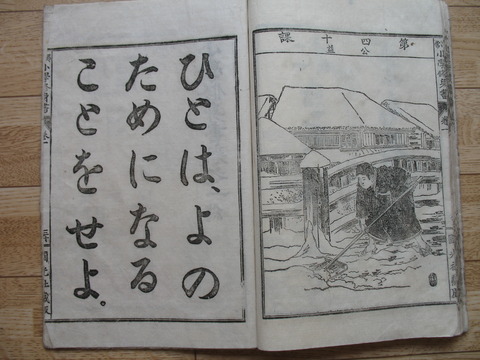 第四十課
公益
ひとは、よの
ためになる
ことをせよ。